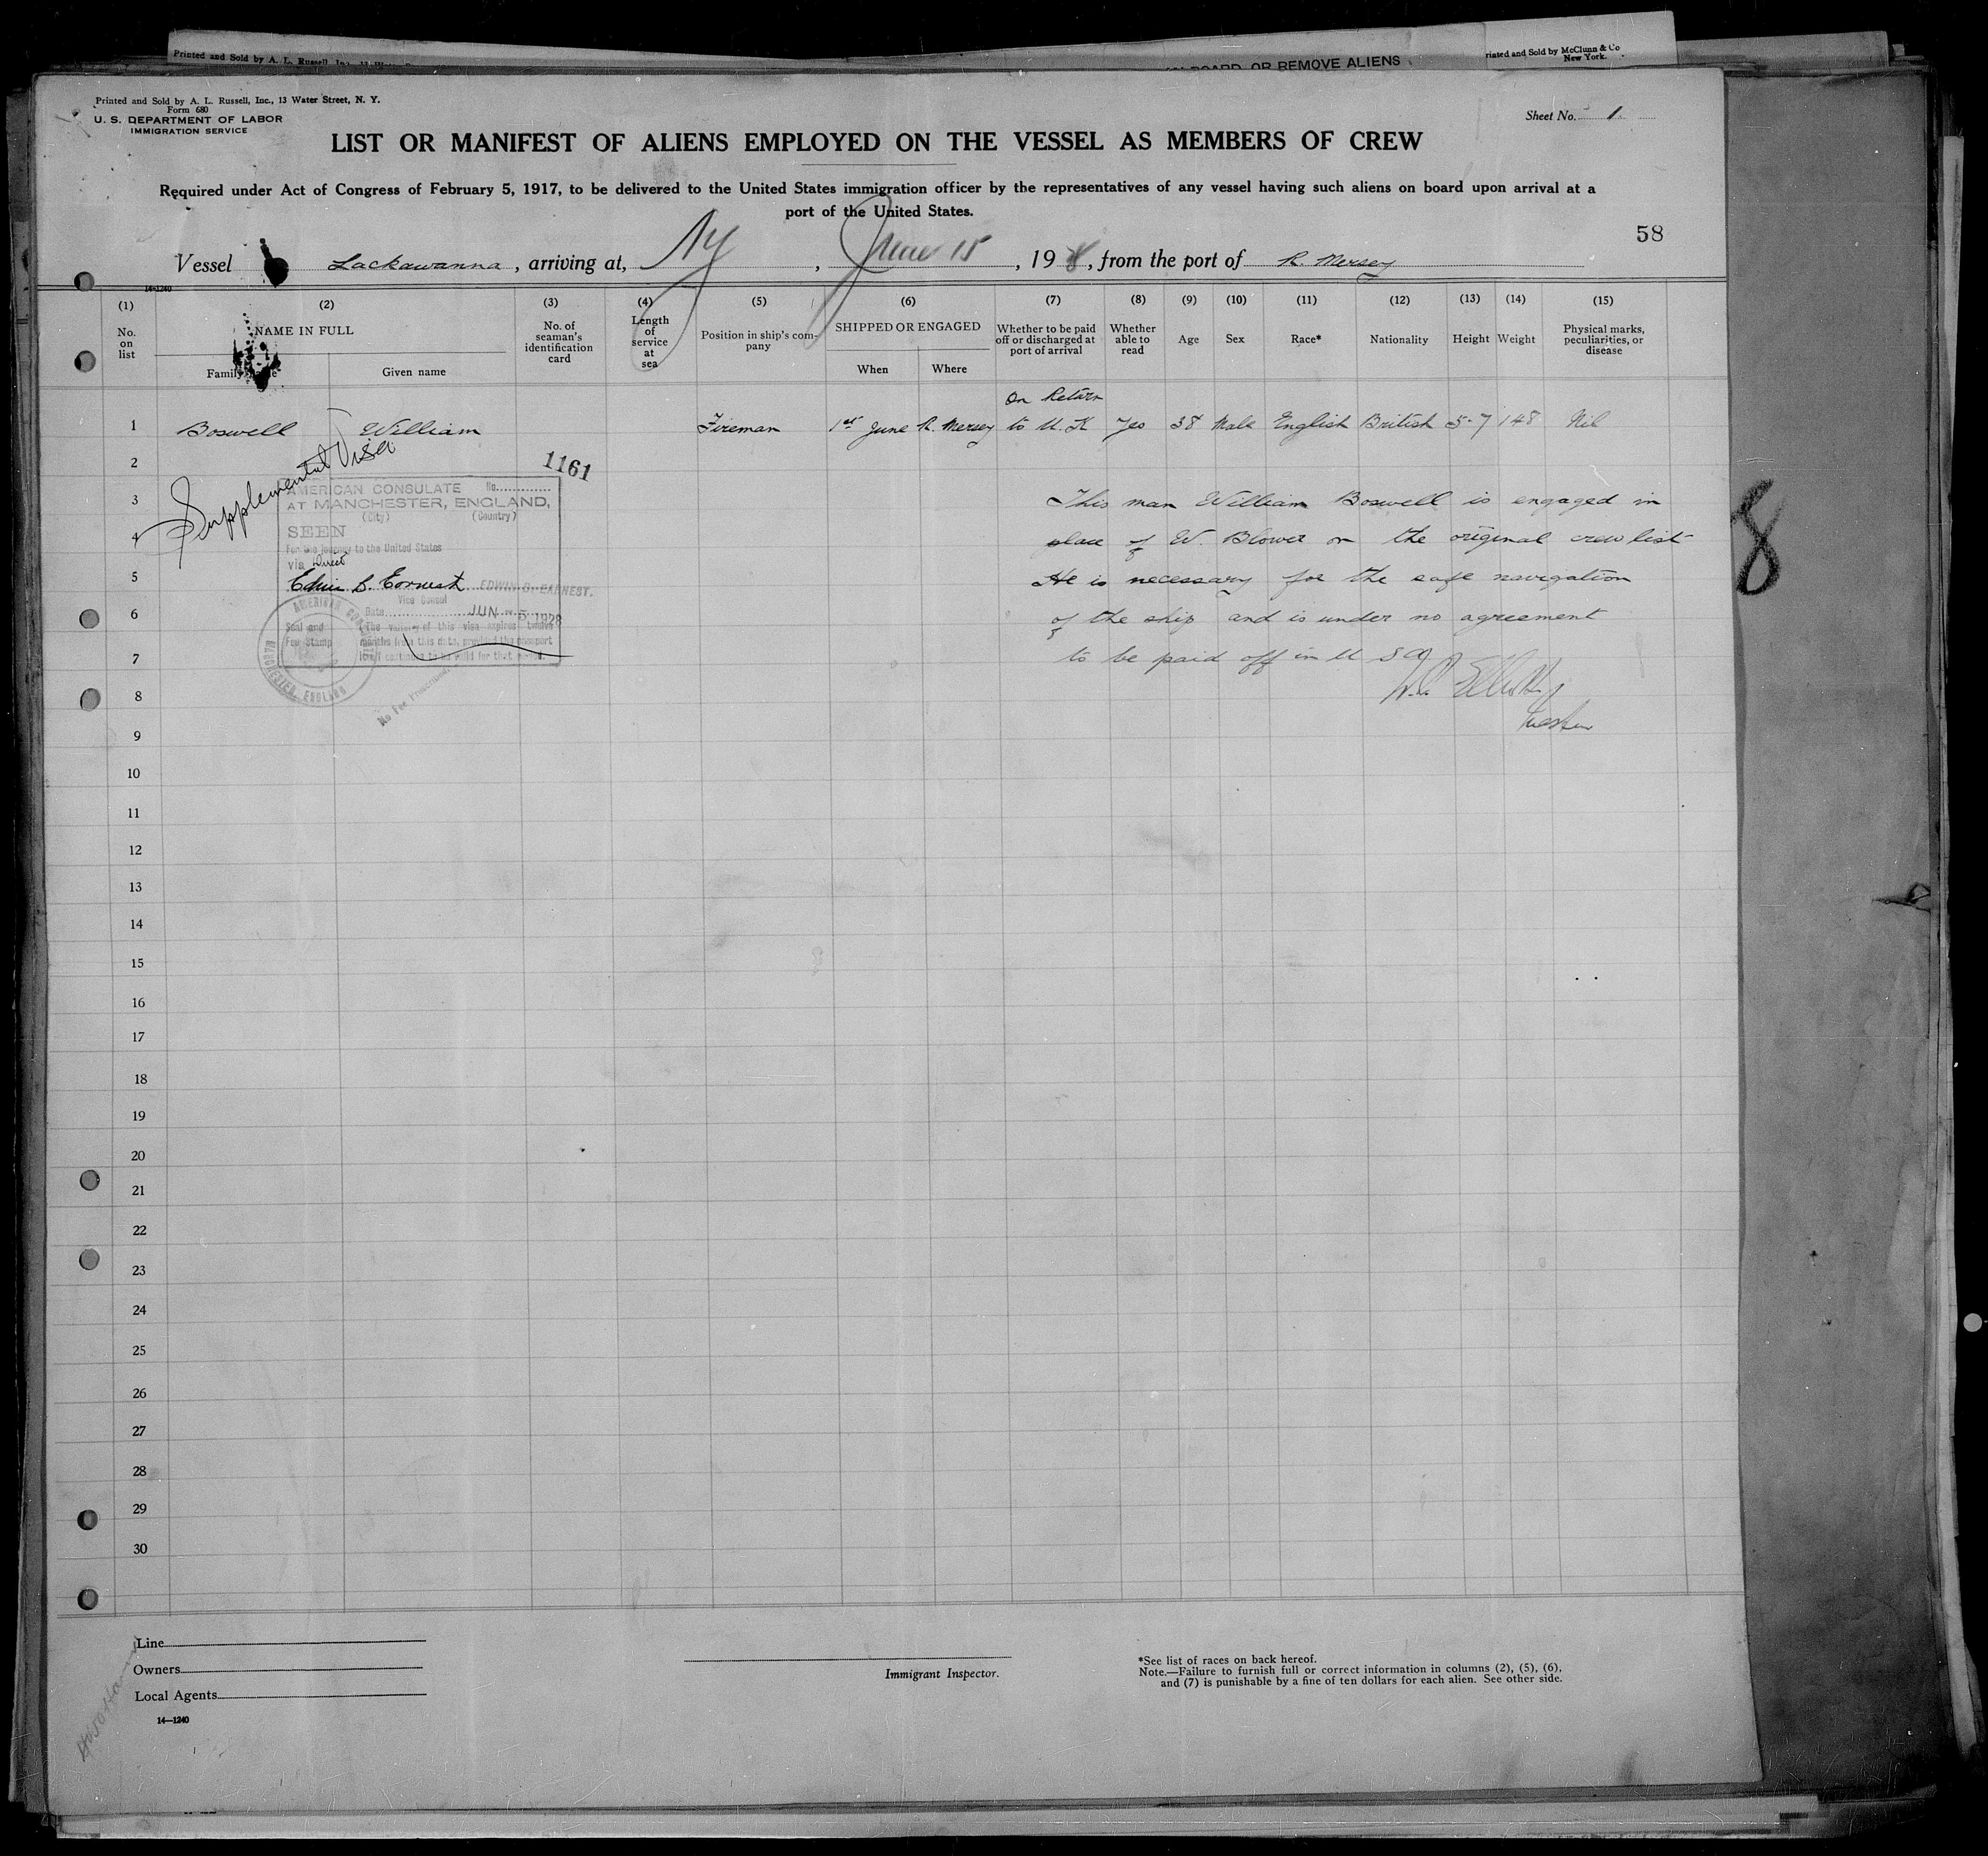 Printed and Sold by A. L. Russell, Inc.,
N BOARD, OR REMOVE ALIENS
rinted and Sold by McClunn & Co
New York.
Printed and Sold by A. L. Russell, Inc., 13 Water Street, N. Y.
Form 680
U. S. DEPARTMENT OF LABOR
IMMIGRATION SERVICE
Sheet No. 1
LIST OR MANIFEST OF ALIENS EMPLOYED ON THE VESSEL AS MEMBERS OF CREW
Required under Act of Congress of February 5, 1917, to be delivered to the United States immigration officer by the representatives of any vessel having such aliens on board upon arrival at a
port of the United States.
58
Vessel Lackawanna, arriving at, NY, June 15, 1928, from the port of R. Mersey
14-1240
(1) (2) (3) (4) (5) (6) (7) (8) (9) (10) (11) (12) (13) (14) (15)
No. on list
NAME IN FULL
Family name Given name
No. of seaman's identification card
Length of service at sea
Position in ship's company
SHIPPED OR ENGAGED
When Where
Whether to be paid off or discharged at port of arrival
Whether able to read
Age
Sex
Race*
Nationality
Height
Weight
Physical marks, peculiarities, or disease
On Return
1 Boswell William Fireman 1st June R. Mersey to U.K Yes 38 Male English British 5-7 148 Nil
Supplemental Visa
1161
AMERICAN CONSULATE No.
AT MANCHESTER, ENGLAND,
(City) (Country)
SEEN
For the journey to the United States
via Direct
Edwin B. Earnest EDWIN B. EARNEST.
Vice Consul
Date JUN -5 1928
Seal and Fee Stamp
The validity of this visa expires twelve
months from this date, provided the passport
itself continues to be valid for that period.
AMERICAN CONSULATE
MANCHESTER, ENGLAND
No Fee Prescribed
This man William Boswell is engaged in
place of W. Blower on the original crew list
He is necessary for the safe navigation
of the ship and is under no agreement
to be paid off in U S A
Master
8
2
3
4
5
6
7
8
9
10
11
12
13
14
15
16
17
18
19
20
21
22
23
24
25
26
27
28
29
30
Line
Owners
Local Agents
14—1240
Immigrant Inspector.
*See list of races on back hereof.
Note.—Failure to furnish full or correct information in columns (2), (5), (6),
and (7) is punishable by a fine of ten dollars for each alien. See other side.